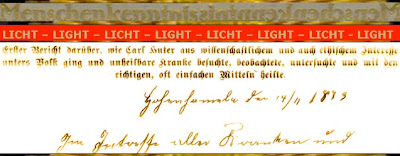 LICHT – LIGHT – LICHT – LIGHT – LICHT – LIGHT – LICHT – LIGHT
Erster Bericht darüber, wie Carl Huter aus wissenschaftlichem und auch ethischem Interesse
unters Volk ging und unheilbare Kranke besuchte, beobachtete, untersuchte und mit den
richtigen, oft einfachen Mitteln heilte.
Hohenhameln den 14/11 1893
Im Interesse aller Kranken und